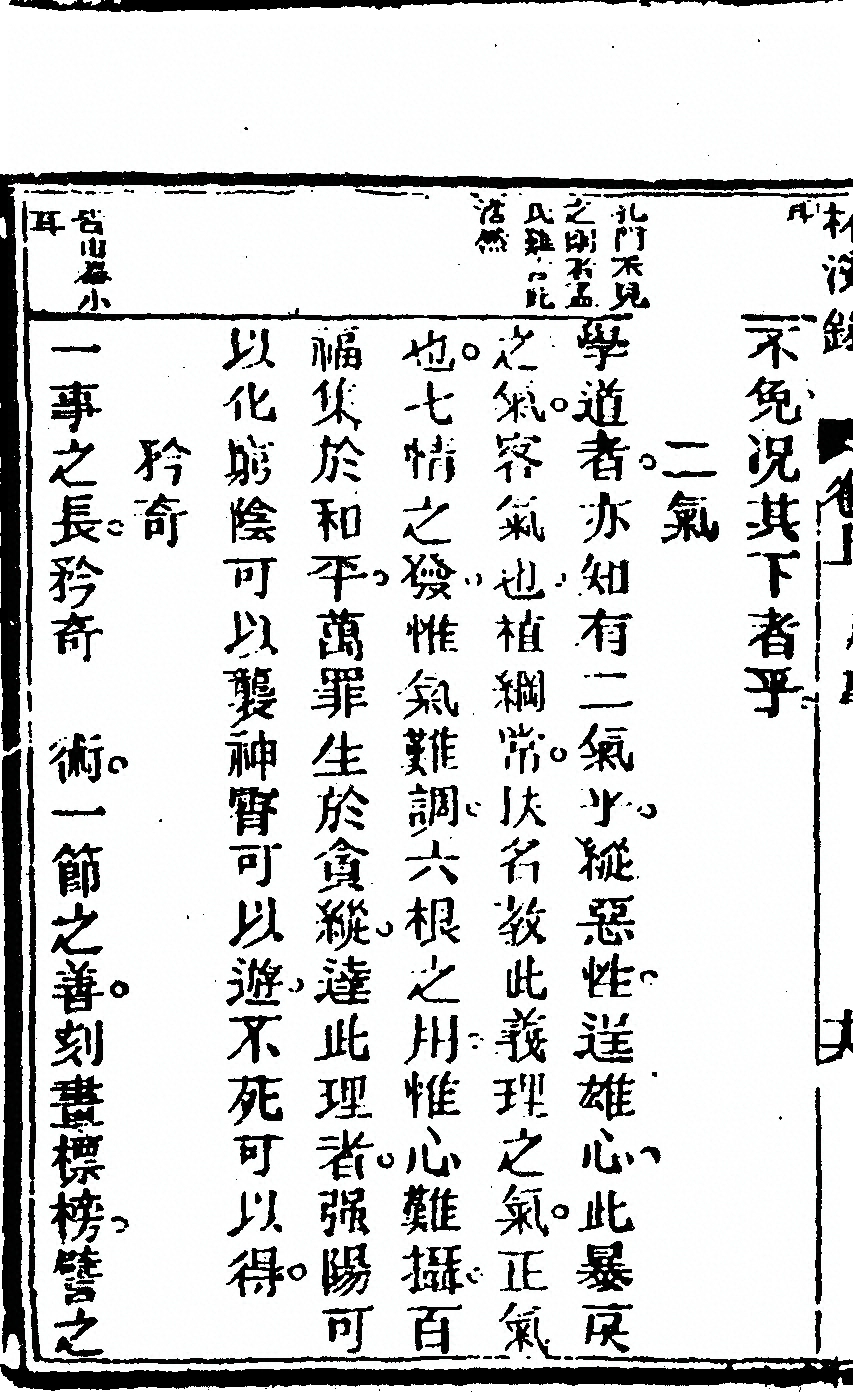 耳
不免况其下者乎
二氣
孔門不見
之剛者孟
氏難言此
浩然
學道者亦知有二氣乎縱惡性逞雄心此暴戾
之氣客氣也植綱常扶名教此義理之氣正氣
也七情之發惟氣難調六根之用惟心難攝百
福集於和平萬罪生於貪縱達此理者强陽可
以化窮陰可以襲神霄可以遊不死可以得
矜奇
小
耳
一事之長矜奇 術一節之善刻畫標榜譬之